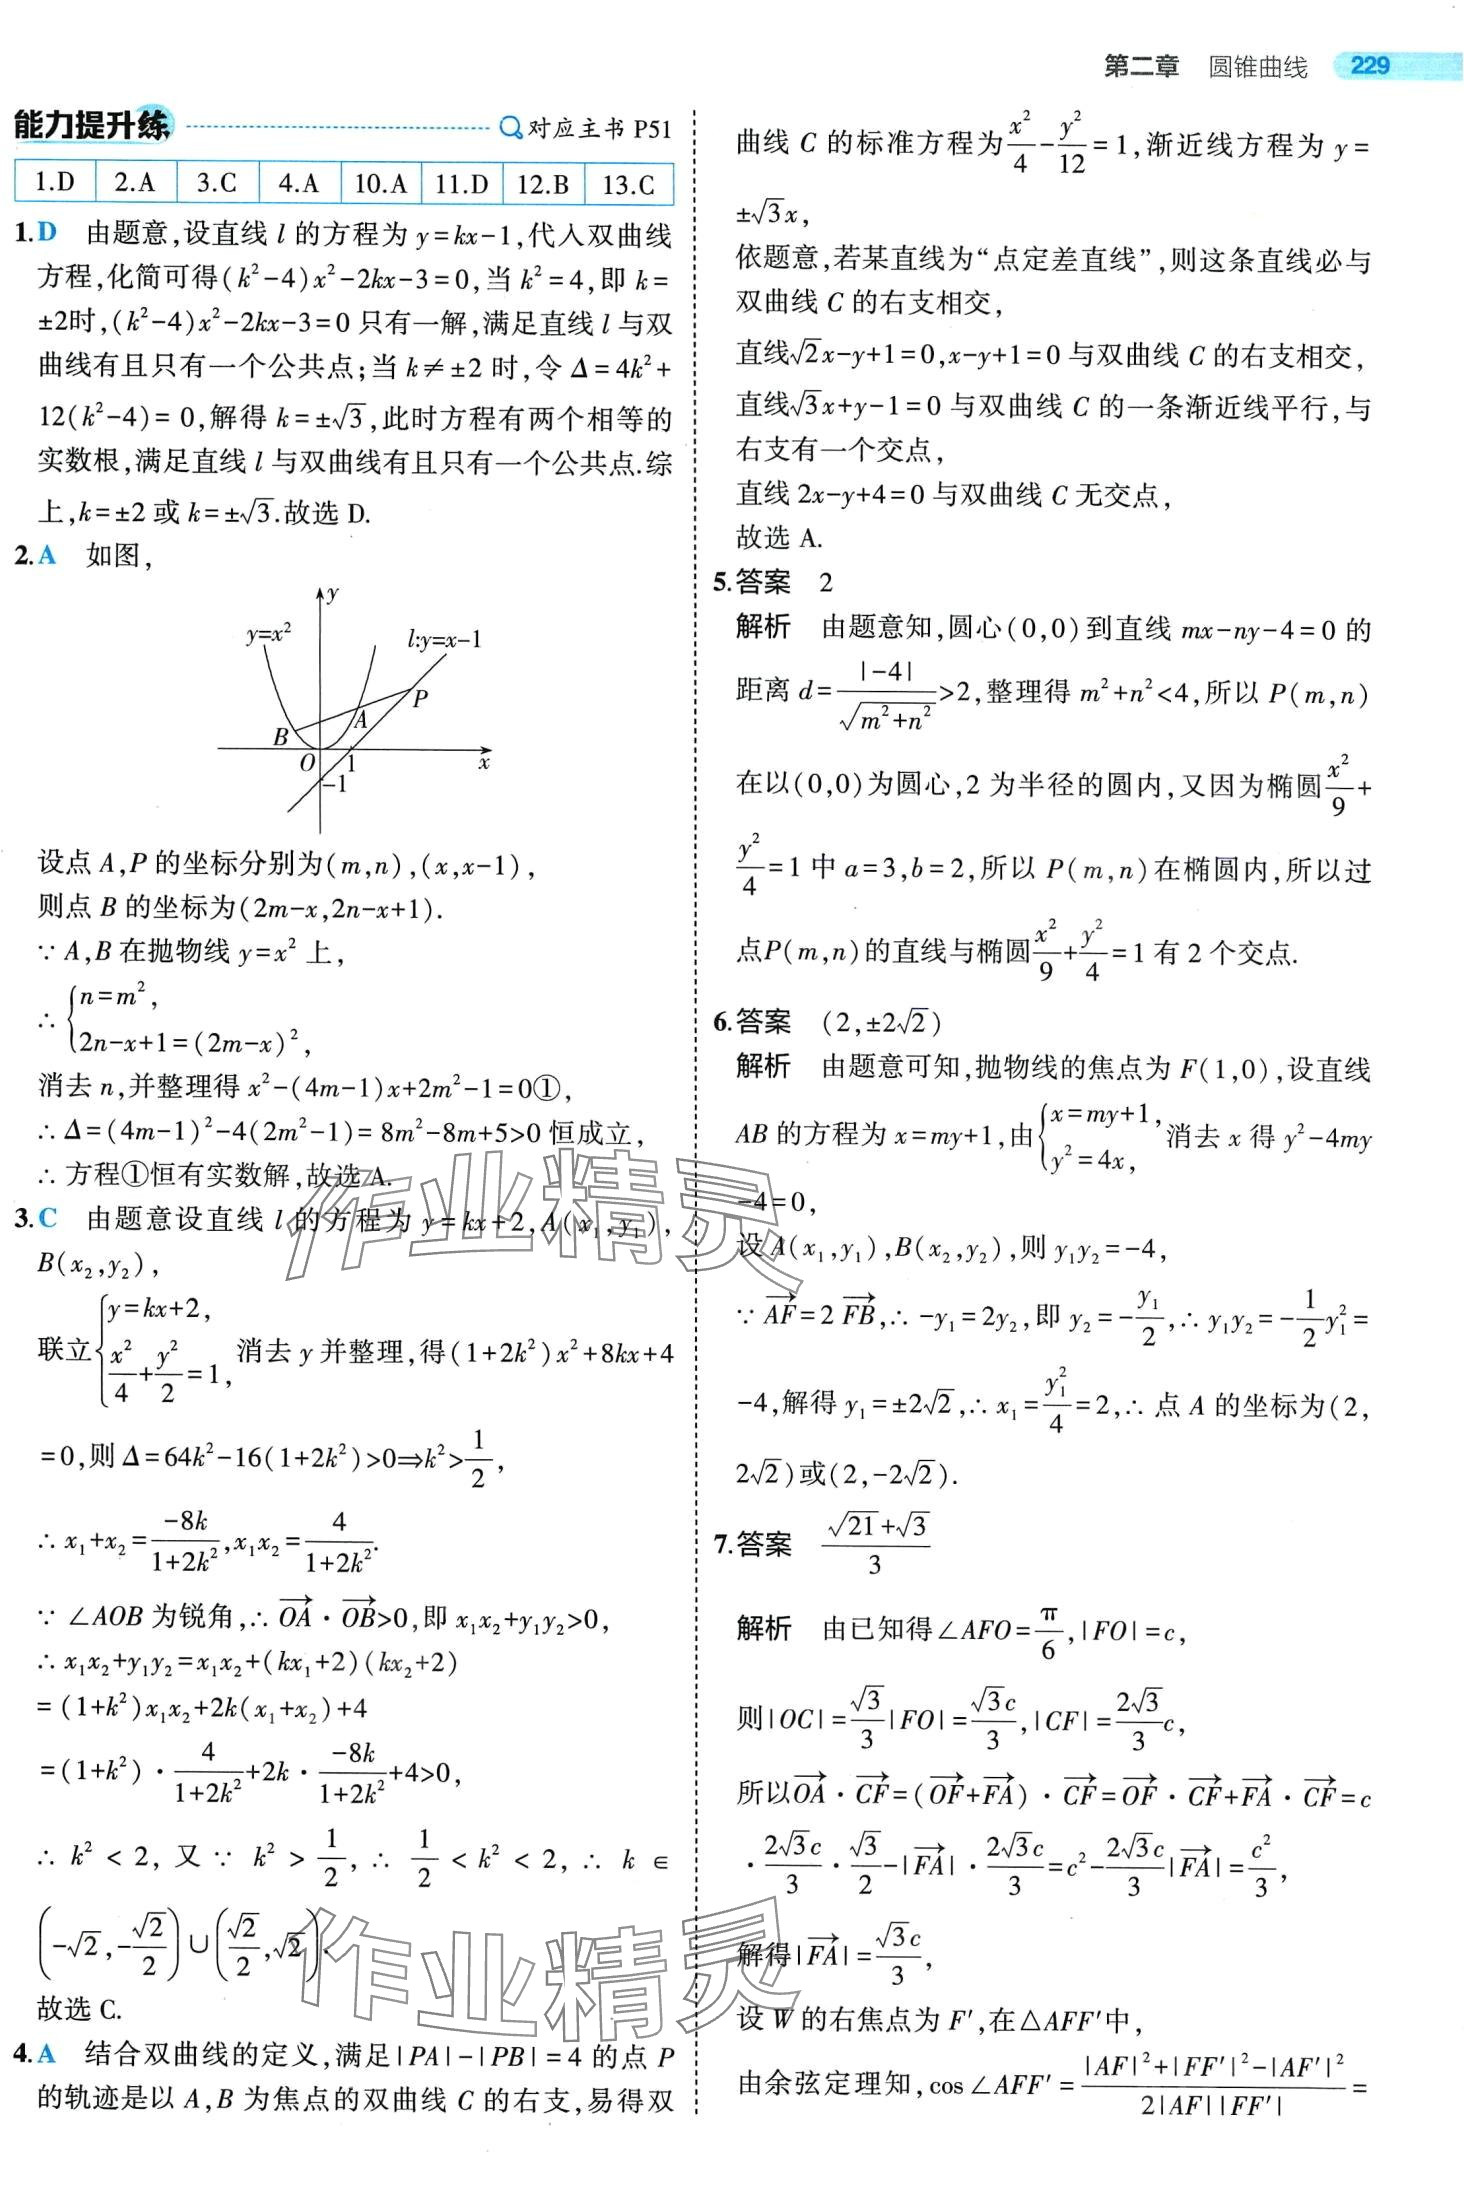 第二章 圆锥曲线 229
能力提升练 对应主书 P51
1.D 2.A 3.C 4.A 10.A 11.D 12.B 13.C
1.D 由题意,设直线 l 的方程为 y=kx-1,代入双曲线
方程,化简可得(k²-4)x²-2kx-3=0,当 k²=4,即 k=
±2时,(k²-4)x²-2kx-3=0 只有一解,满足直线 l 与双
曲线有且只有一个公共点;当 k≠±2 时,令 Δ=4k²+
12(k²-4)=0,解得 k=±√3,此时方程有两个相等的
实数根,满足直线 l 与双曲线有且只有一个公共点.综
上,k=±2 或 k=±√3.故选 D.
2.A 如图,
y
y=x²
l:y=x-1
P
A
B
O 1 x
-1
设点 A,P 的坐标分别为(m,n),(x,x-1),
则点 B 的坐标为(2m-x,2n-x+1).
∵ A,B 在抛物线 y=x² 上,
∴ {n=m²,
2n-x+1=(2m-x)²,
消去 n,并整理得 x²-(4m-1)x+2m²-1=0①,
∴ Δ=(4m-1)²-4(2m²-1)=8m²-8m+5>0 恒成立,
∴ 方程①恒有实数解,故选 A.
3.C 由题意设直线 l 的方程为 y=kx+2,A(x₁,y₁),
B(x₂,y₂),
联立{y=kx+2, x²/4+y²/2=1, 消去 y 并整理,得(1+2k²)x²+8kx+4
=0,则 Δ=64k²-16(1+2k²)>0⇒k²>1/2,
∴ x₁+x₂=-8k/(1+2k²),x₁x₂=4/(1+2k²).
∵ ∠AOB 为锐角,∴ →OA·→OB>0,即 x₁x₂+y₁y₂>0,
∴ x₁x₂+y₁y₂=x₁x₂+(kx₁+2)(kx₂+2)
=(1+k²)x₁x₂+2k(x₁+x₂)+4
=(1+k²)·4/(1+2k²)+2k·-8k/(1+2k²)+4>0,
∴ k²<2,又∵ k²>1/2,∴ 1/2<k²<2,∴ k∈
(-√2,-√2/2)∪(√2/2,√2).
故选 C.
4.A 结合双曲线的定义,满足|PA|-|PB|=4 的点 P
的轨迹是以 A,B 为焦点的双曲线 C 的右支,易得双
曲线 C 的标准方程为x²/4-y²/12=1,渐近线方程为 y=
±√3x,
依题意,若某直线为“点定差直线”,则这条直线必与
双曲线 C 的右支相交,
直线√2x-y+1=0,x-y+1=0 与双曲线 C 的右支相交,
直线√3x+y-1=0 与双曲线 C 的一条渐近线平行,与
右支有一个交点,
直线 2x-y+4=0 与双曲线 C 无交点,
故选 A.
5.答案 2
解析 由题意知,圆心(0,0)到直线 mx-ny-4=0 的
距离 d=|-4|/√(m²+n²)>2,整理得 m²+n²<4,所以 P(m,n)
在以(0,0)为圆心,2 为半径的圆内,又因为椭圆x²/9+
y²/4=1 中 a=3,b=2,所以 P(m,n)在椭圆内,所以过
点P(m,n)的直线与椭圆x²/9+y²/4=1 有 2 个交点.
6.答案 (2,±2√2)
解析 由题意可知,抛物线的焦点为 F(1,0),设直线
AB 的方程为 x=my+1,由{x=my+1, y²=4x, 消去 x 得 y²-4my
-4=0,
设 A(x₁,y₁),B(x₂,y₂),则 y₁y₂=-4,
∵ →AF=2→FB,∴ -y₁=2y₂,即 y₂=-y₁/2,∴ y₁y₂=-1/2y₁²=
-4,解得 y₁=±2√2,∴ x₁=y₁²/4=2,∴ 点 A 的坐标为(2,
2√2)或(2,-2√2).
7.答案 (√21+√3)/3
解析 由已知得∠AFO=π/6,|FO|=c,
则|OC|=√3/3|FO|=√3c/3,|CF|=2√3/3c,
所以→OA·→CF=(→OF+→FA)·→CF=→OF·→CF+→FA·→CF=c
·2√3c/3·√3/2-|→FA|·2√3c/3=c²-2√3c/3|→FA|=c²/3,
解得|→FA|=√3c/3,
设 W 的右焦点为 F′,在△AFF′中,
由余弦定理知,cos∠AFF′=(|AF|²+|FF′|²-|AF′|²)/(2|AF||FF′|)=
作业精灵
作业精灵